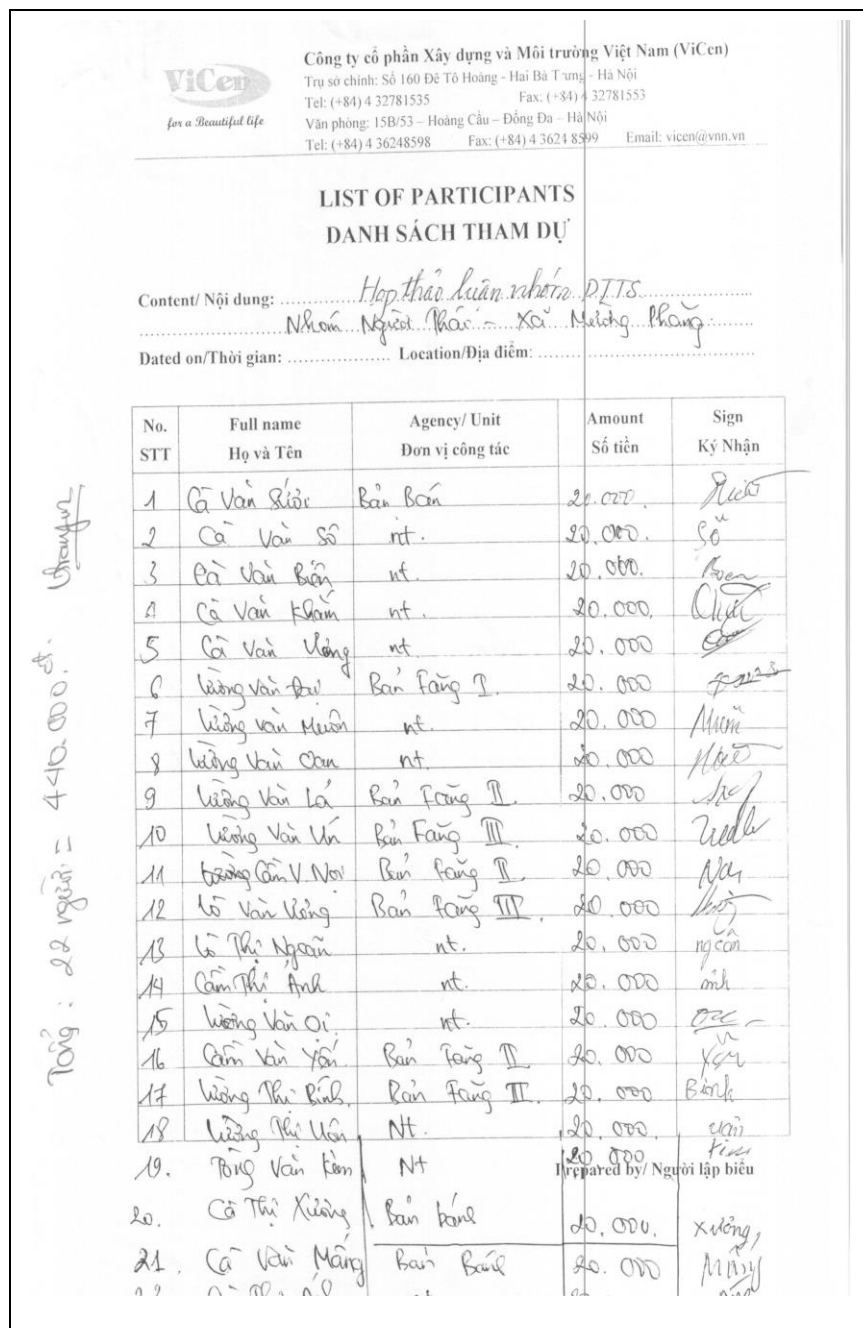 ViCen
for a Beautiful life
Công ty cổ phần Xây dựng và Môi trường Việt Nam (ViCen)
Trụ sở chính: Số 160 Đê Tô Hoàng - Hai Bà Trưng - Hà Nội
Tel: (+84) 4 32781535 Fax: (+84) 4 32781553
Văn phòng: 15B/53 – Hoàng Cầu – Đống Đa – Hà Nội
Tel: (+84) 4 36248598 Fax: (+84) 4 3624 8599 Email: vicen@vnn.vn
LIST OF PARTICIPANTS
DANH SÁCH THAM DỰ
Content/ Nội dung: Họp thảo luận nhóm DTTS
Nhóm Người Thái - Xã Mường Phăng
Dated on/Thời gian: Location/Địa điểm:
No. Full name Agency/ Unit Amount Sign
STT Họ và Tên Đơn vị công tác Số tiền Ký Nhận
1 Cà Văn Bản Bánh 20.000.
2 Cà Văn Số nt. 20.000. Số
3 Cà Văn Biên nt. 20.000.
4 Cà Văn Khăm nt. 20.000.
5 Cà Văn nt 20.000
6 Lường Văn Bản Făng I. 20.000
7 Lường Văn Muôn nt. 20.000
8 Lường Văn Oan nt. 20.000
9 Lường Văn Lá Bản Făng II. 20.000
10 Lường Văn Ún Bản Făng III. 20.000
11 Cầm V. Nơi Bản Făng II 20.000
12 Lò Văn Bản Făng III. 20.000
13 Lò Thị Ngoan nt. 20.000
14 Cầm Thị Ánh nt. 20.000
15 Lường Văn Oi. nt. 20.000
16 Cầm Văn Yến Bản Făng II 20.000
17 Lường Thị Bính Bản Făng II. 20.000 Bình
18 Lường Thị Nt. 20.000.
19. Tòng Văn Kèm Nt 20.000
Prepared by/ Người lập biểu
20. Cà Thị Xưởng Bản bánh 20.000. xưởng,
21. Cà Văn Mẳng Bản Bánh 20.000
Tổng: 22 người = 440.000 đ.